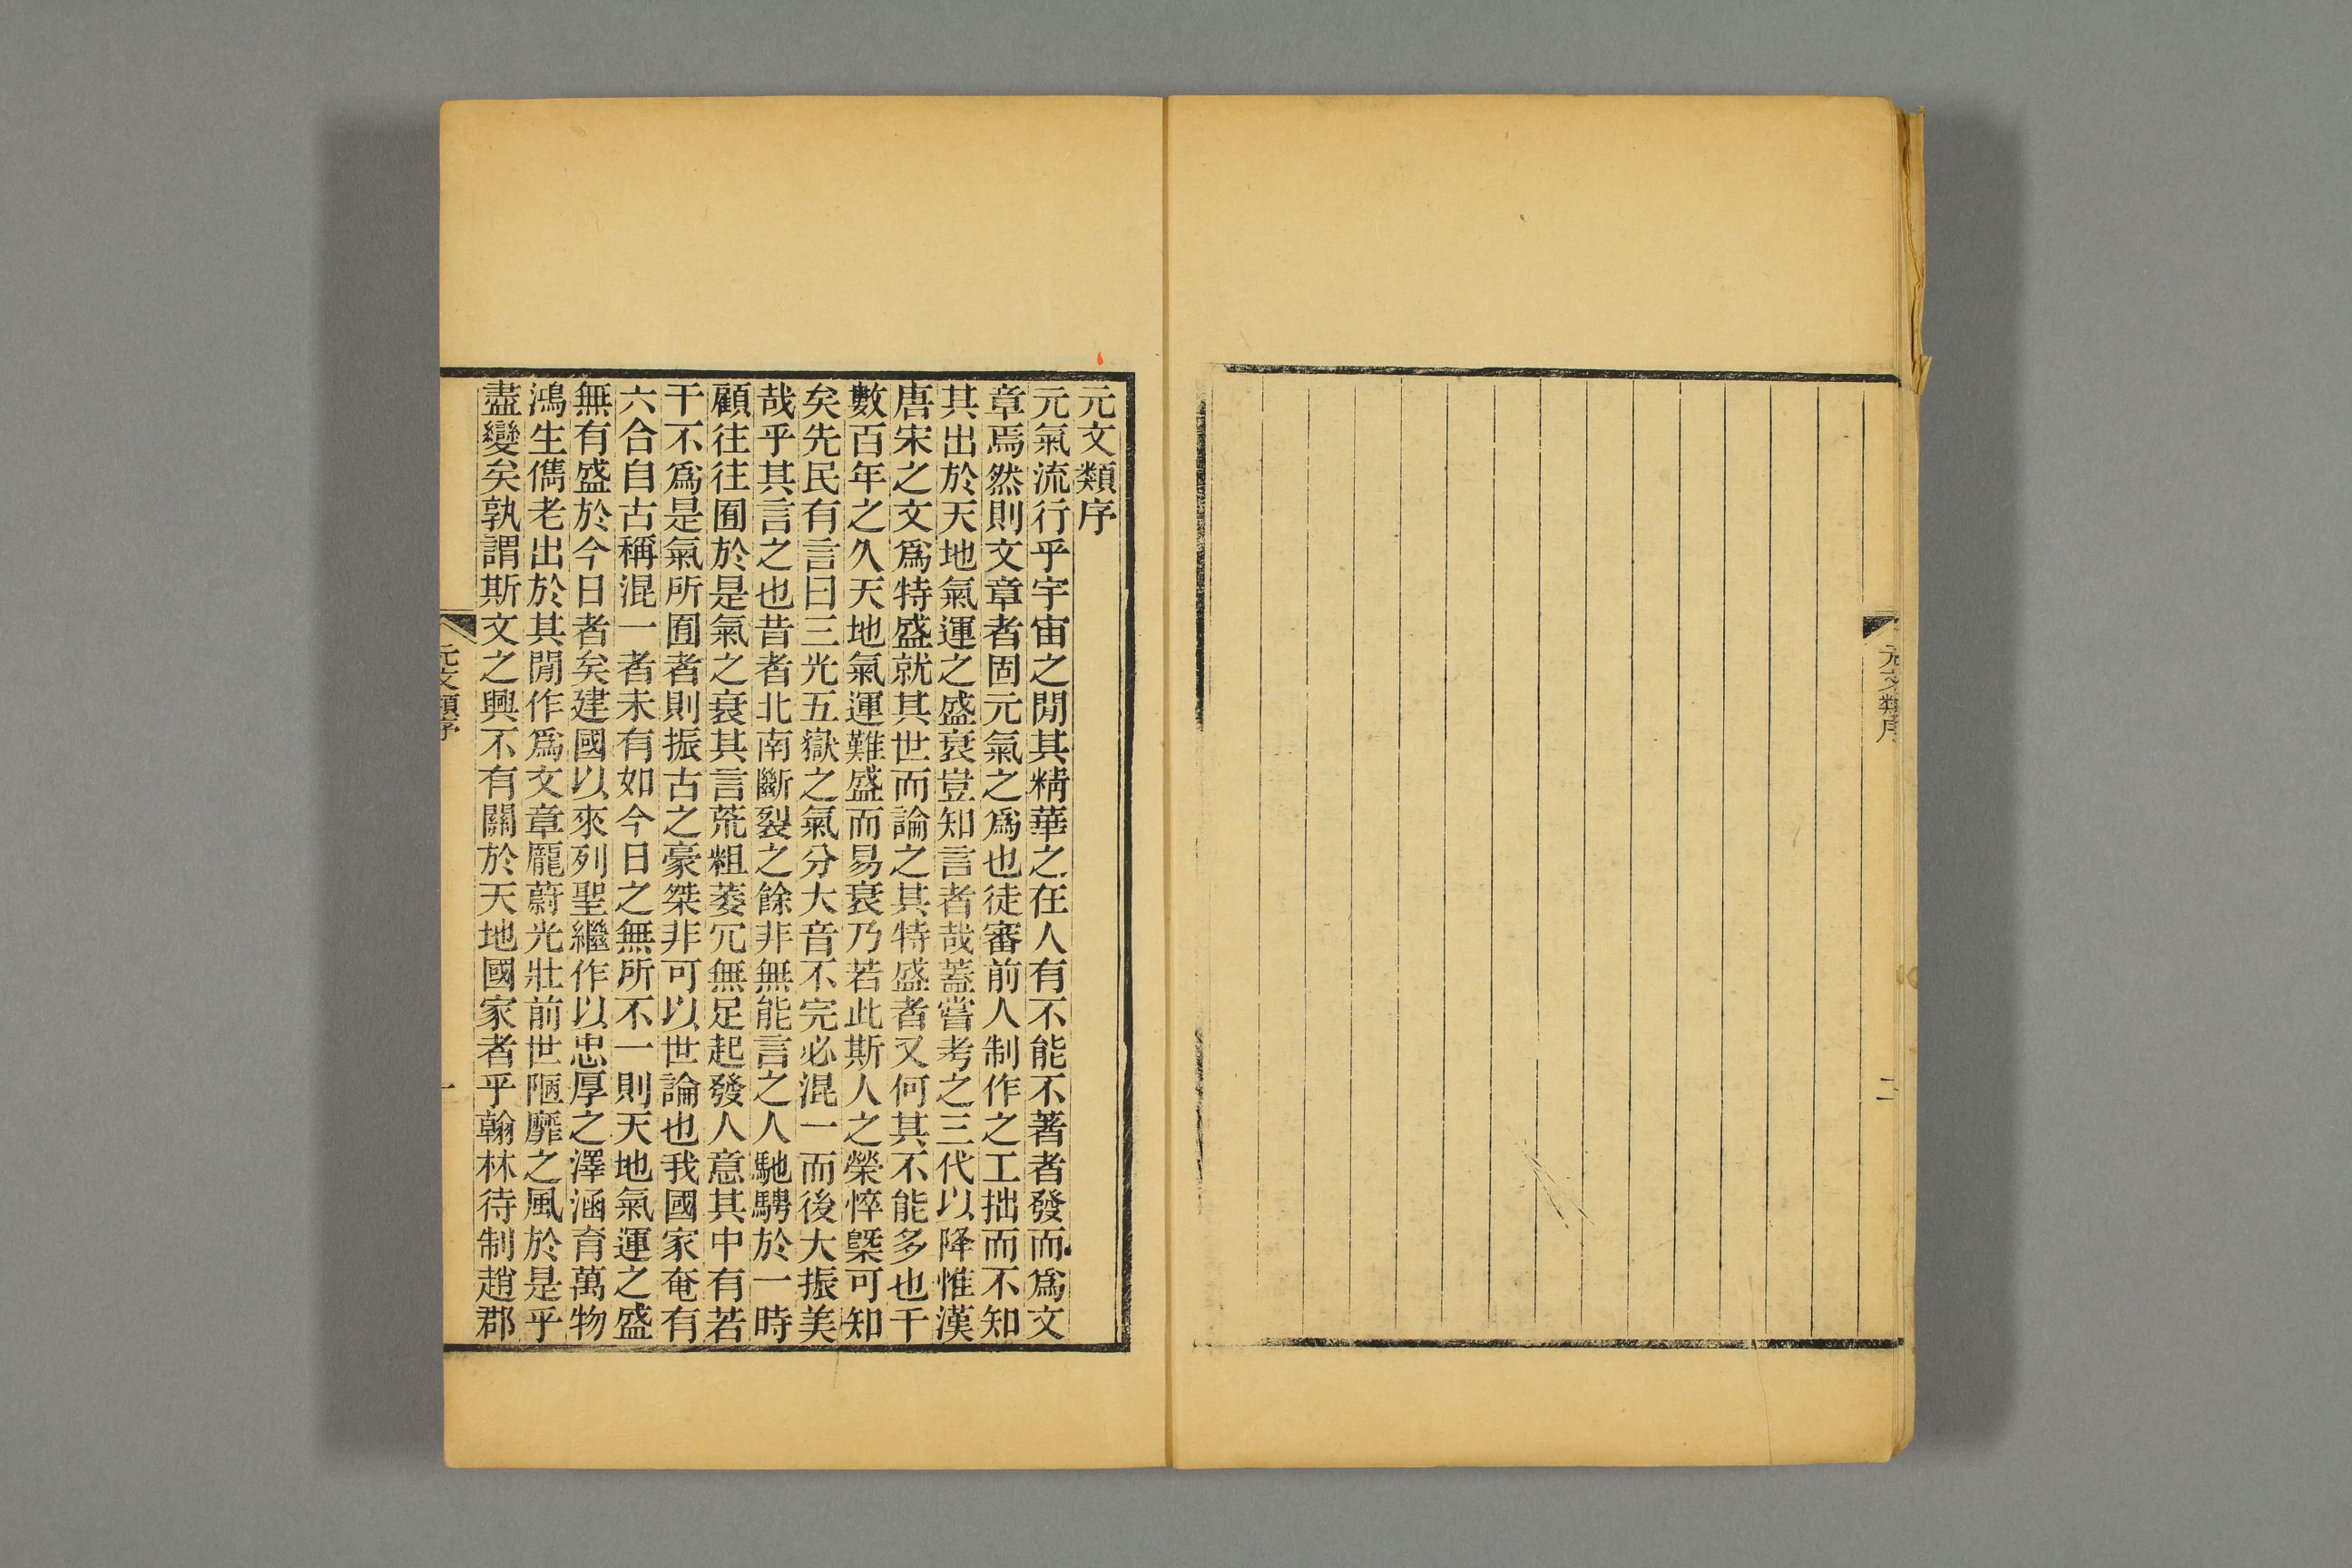 元文類序
二
元文類序
元氣流行乎宇宙之閒其精華之在人有不能不著者發而爲文
章焉然則文章者固元氣之爲也徒審前人制作之工拙而不知
其出於天地氣運之盛衰豈知言者哉蓋嘗考之三代以降惟漢
唐宋之文爲特盛就其世而論之其特盛者又何其不能多也千
數百年之久天地氣運難盛而易衰乃若此斯人之榮悴槩可知
矣先民有言曰三光五嶽之氣分大音不完必混一而後大振美
哉乎其言之也昔者北南斷裂之餘非無能言之人馳騁於一時
顧往往囿於是氣之衰其言荒粗萎冗無足起發人意其中有若
干不爲是氣所囿者則振古之豪桀非可以世論也我國家奄有
六合自古稱混一者未有如今日之無所不一則天地氣運之盛
無有盛於今日者矣建國以來列聖繼作以忠厚之澤涵育萬物
鴻生儁老出於其閒作爲文章龐蔚光壯前世陋靡之風於是乎
盡變矣孰謂斯文之興不有關於天地國家者乎翰林待制趙郡
元文類序
一